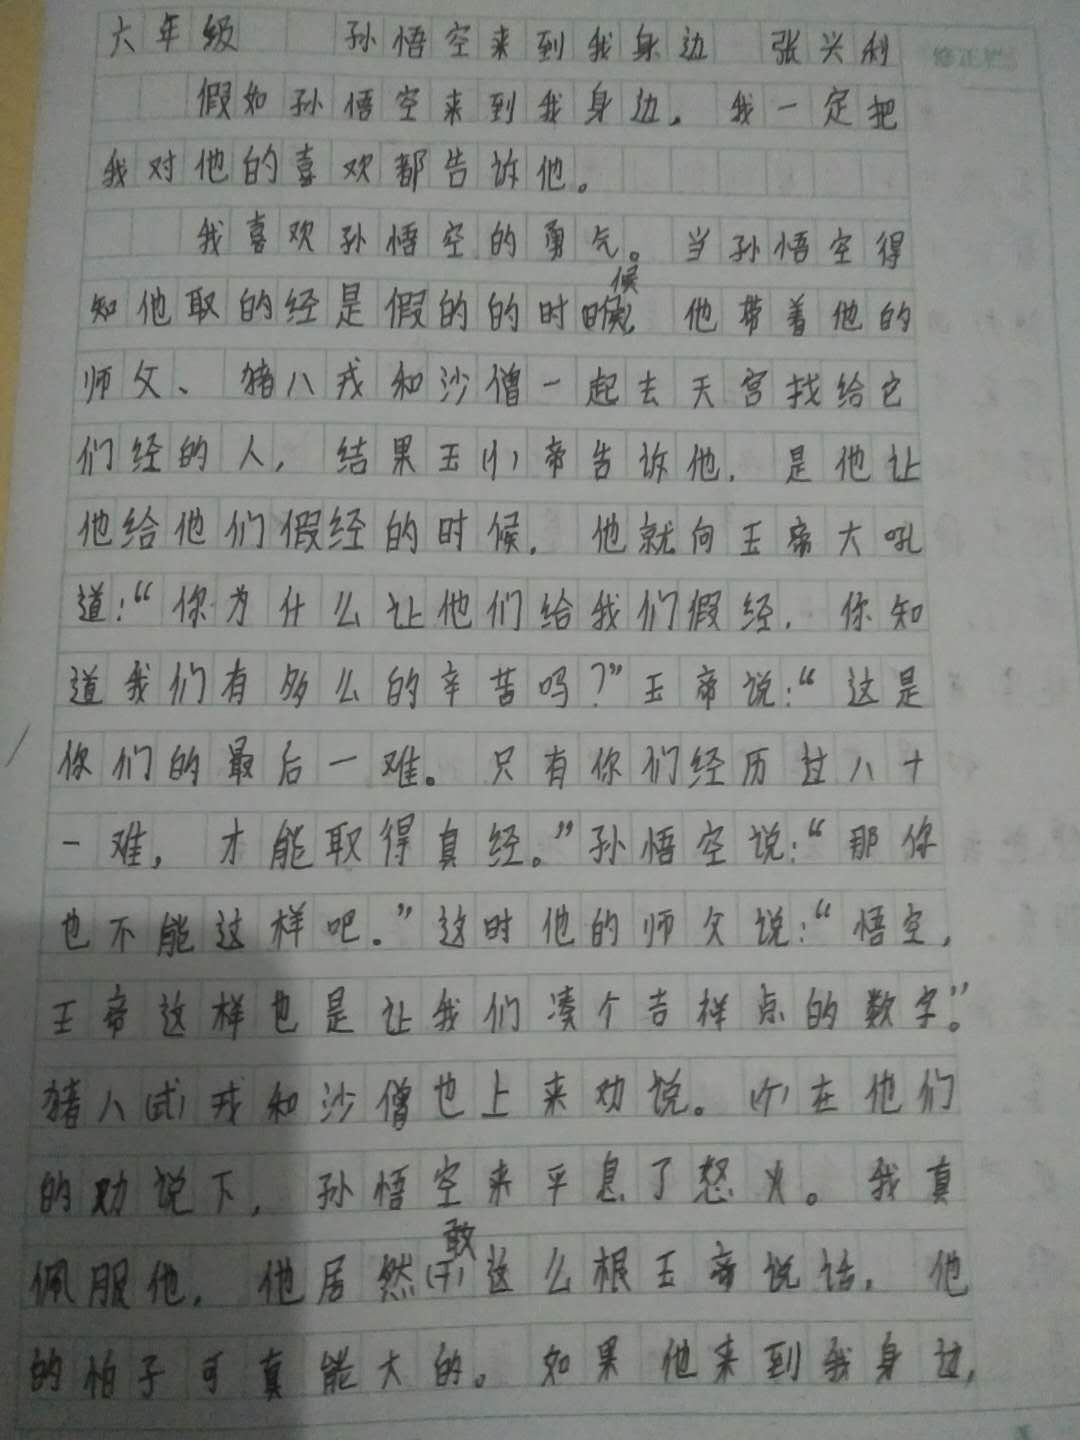 六年级 孙悟空来到我身边 张兴利
假如孙悟空来到我身边，我一定把
我对他的喜欢都告诉他。
我喜欢孙悟空的勇气。当孙悟空得
候
知他取的经是假的的时 他带着他的
师父、猪八戒和沙僧一起去天宫找给它
们经的人，结果玉(个)帝告诉他，是他让
他给他们假经的时候，他就向玉帝大吼
道：“你为什么让他们给我们假经，你知
道我们有多么的辛苦吗？”玉帝说：“这是
你们的最后一难。只有你们经历过八十
一难，才能取得真经。”孙悟空说：“那你
也不能这样吧。”这时他的师父说：“悟空，
玉帝这样也是让我们凑个吉祥点的数字。”
猪八(试)戒和沙僧也上来劝说。(个)在他们
的劝说下，孙悟空来平息了怒火。我真
敢
佩服他，他居然(干)这么根玉帝说话，他
的怕子可真能大的。如果他来到我身边，